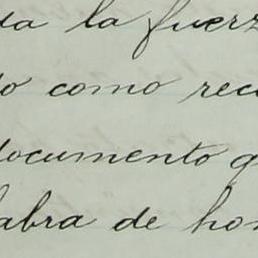 da la fuerz
do como reci
documento q
labra de hon